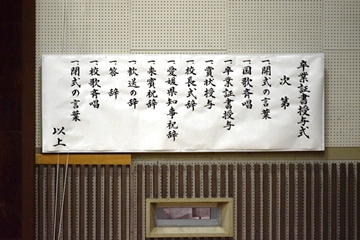 卒業証書授与式
次第
一開式の言葉
一国歌斉唱
一卒業証書授与
一賞状授与
一校長式辞
一愛媛県知事祝辞
一来賓祝辞
一歓送の辞
一答辞
一校歌斉唱
一閉式の言葉
以上